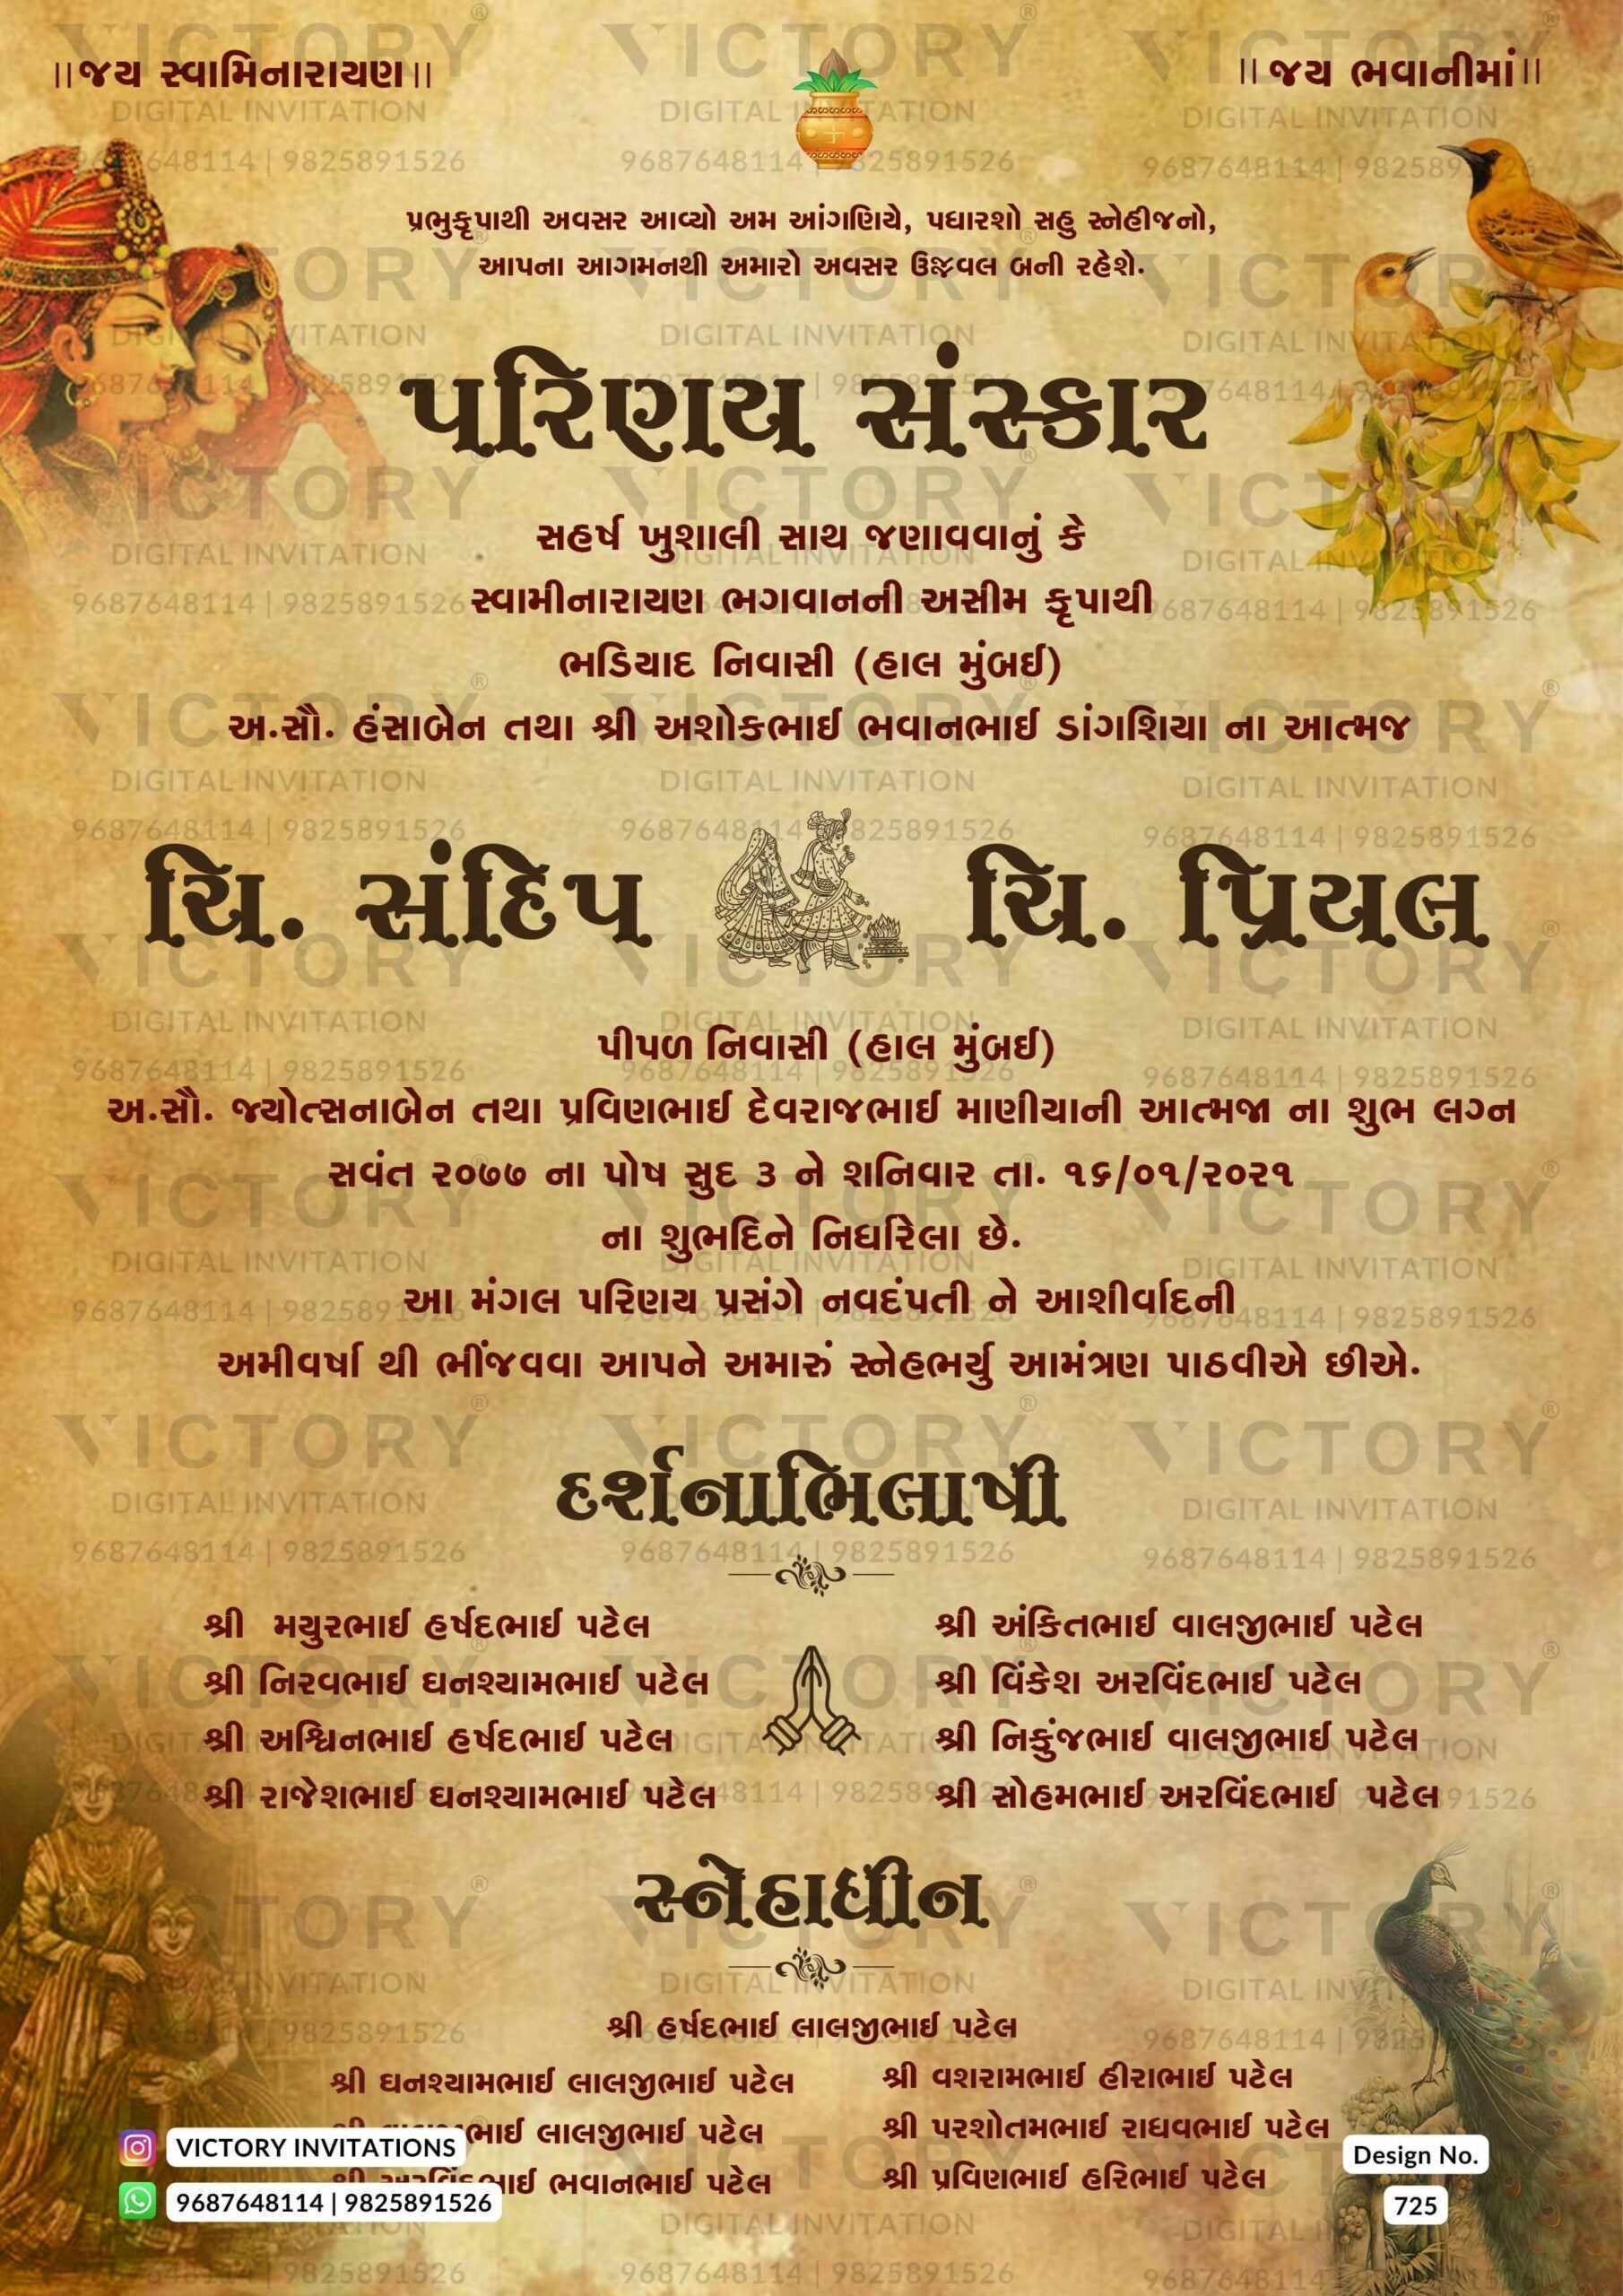 ॥જય સ્વામિનારાયણ॥
॥જય ભવાનીમાં॥
પ્રભુકૃપાથી અવસર આવ્યો અમ આંગણિયે, પધારશો સહુ સ્નેહીજનો,
આપના આગમનથી અમારો અવસર ઉજ્જવલ બની રહેશે.
પરિણય સંસ્કાર
સહર્ષ ખુશાલી સાથ જણાવવાનું કે
સ્વામીનારાયણ ભગવાનની અસીમ કૃપાથી
ભડિયાદ નિવાસી (હાલ મુંબઈ)
અ.સૌ. હંસાબેન તથા શ્રી અશોકભાઈ ભવાનભાઈ ડાંગશિયા ના આત્મજ
ચિ. સંદિપ
ચિ. પ્રિયલ
પીપળ નિવાસી (હાલ મુંબઈ)
અ.સૌ. જ્યોત્સનાબેન તથા પ્રવિણભાઈ દેવરાજભાઈ માણીયાની આત્મજા ના શુભ લગ્ન
સવંત ૨૦૭૭ ના પોષ સુદ ૩ ને શનિવાર તા. ૧૬/૦૧/૨૦૨૧
ના શુભદિને નિર્ધારેલા છે.
આ મંગલ પરિણય પ્રસંગે નવદંપતી ને આશીર્વાદની
અમીવર્ષા થી ભીંજવવા આપને અમારું સ્નેહભર્યુ આમંત્રણ પાઠવીએ છીએ.
દર્શનાભિલાષી
શ્રી મયુરભાઈ હર્ષદભાઈ પટેલ
શ્રી નિરવભાઈ ઘનશ્યામભાઈ પટેલ
શ્રી અશ્વિનભાઈ હર્ષદભાઈ પટેલ
શ્રી રાજેશભાઈ ઘનશ્યામભાઈ પટેલ
શ્રી અંકિતભાઈ વાલજીભાઈ પટેલ
શ્રી વિંકેશ અરવિંદભાઈ પટેલ
શ્રી નિકુંજભાઈ વાલજીભાઈ પટેલ
શ્રી સોહમભાઈ અરવિંદભાઈ પટેલ
સ્નેહાધીન
શ્રી હર્ષદભાઈ લાલજીભાઈ પટેલ
શ્રી ઘનશ્યામભાઈ લાલજીભાઈ પટેલ
લાલજીભાઈ પટેલ
ભવાનભાઈ પટેલ
શ્રી વશરામભાઈ હીરાભાઈ પટેલ
શ્રી પરશોતમભાઈ રાઘવભાઈ પટેલ
શ્રી પ્રવિણભાઈ હરિભાઈ પટેલ
VICTORY INVITATIONS
9687648114 | 9825891526
Design No.
725
VICTORY®
DIGITAL INVITATION
9687648114 | 9825891526